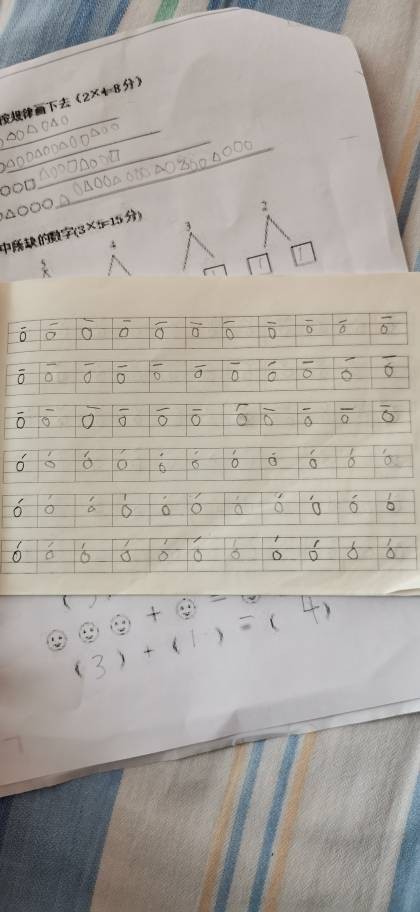 按规律画下去（2×4=8分）
中所缺的数字(3×5=15分)
5 4 3 2
ō ō ō ō ō ō ō ō ō ō ō
ō ō ō ō ō ō ō ō ō ō ō
ō ō ō ō ō ō ō ō ō ō ō
ó ó ó ó ó ó ó ó ó ó ó
ó ó ó ó ó ó ó ó ó ó ó
ó ó ó ó ó ó ó ó ó ó ó
+ =
(3)+(1)=(4)